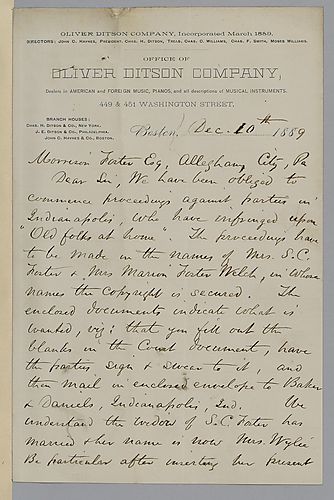 OLIVER DITSON COMPANY, Incorporated March 1889.
DIRECTORS: JOHN C. HAYNES, PRESIDENT. CHAS. H. DITSON, TREAS. CHAS. D. WILLIAMS, CHAS. F. SMITH, MOSES WILLIAMS.
OFFICE OF
OLIVER DITSON COMPANY,
Dealers in AMERICAN and FOREIGN MUSIC, PIANOS, and all descriptions of MUSICAL INSTRUMENTS.
449 & 451 WASHINGTON STREET,
BRANCH HOUSES:
CHAS. H. DITSON & CO., NEW YORK.
J. E. DITSON & CO., PHILADELPHIA.
JOHN C. HAYNES & CO., BOSTON.
Boston, Dec. 10th 1889
Morrison Foster Esq, Allegheny City, Pa
Dear Sir, We have been obliged to
commence proceedings against parties in
Indianapolis, who have infringed upon
"Old folks at home". The proceedings have
to be made in the names of Mrs. S.C.
Foster & Mrs Marion Foster Welch, in whose
names the copyright is secured. The
enclosed documents indicate what is
wanted, viz: that you fill out the
blanks in the Court document, have
the parties sign & swear to it, and
then mail in enclosed envelope to Baker
& Daniels, Indianapolis, Ind. We
understand the widow of S.C. Foster has
married & her name is now Mrs. Wylie
Be particular after inserting her present